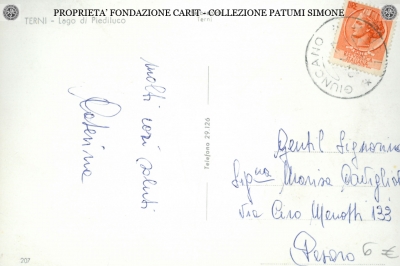 PROPRIETA' FONDAZIONE CARIT - COLLEZIONE PATUMI SIMONE
TERNI - Lago di Piediluco
Terni
GIUNCANO
molti cari saluti
Caterina
Telefono 29.126
Gentil Signorina
Sig.na Marisa
Via Ciro Menotti 133
Pesaro
6 €
207